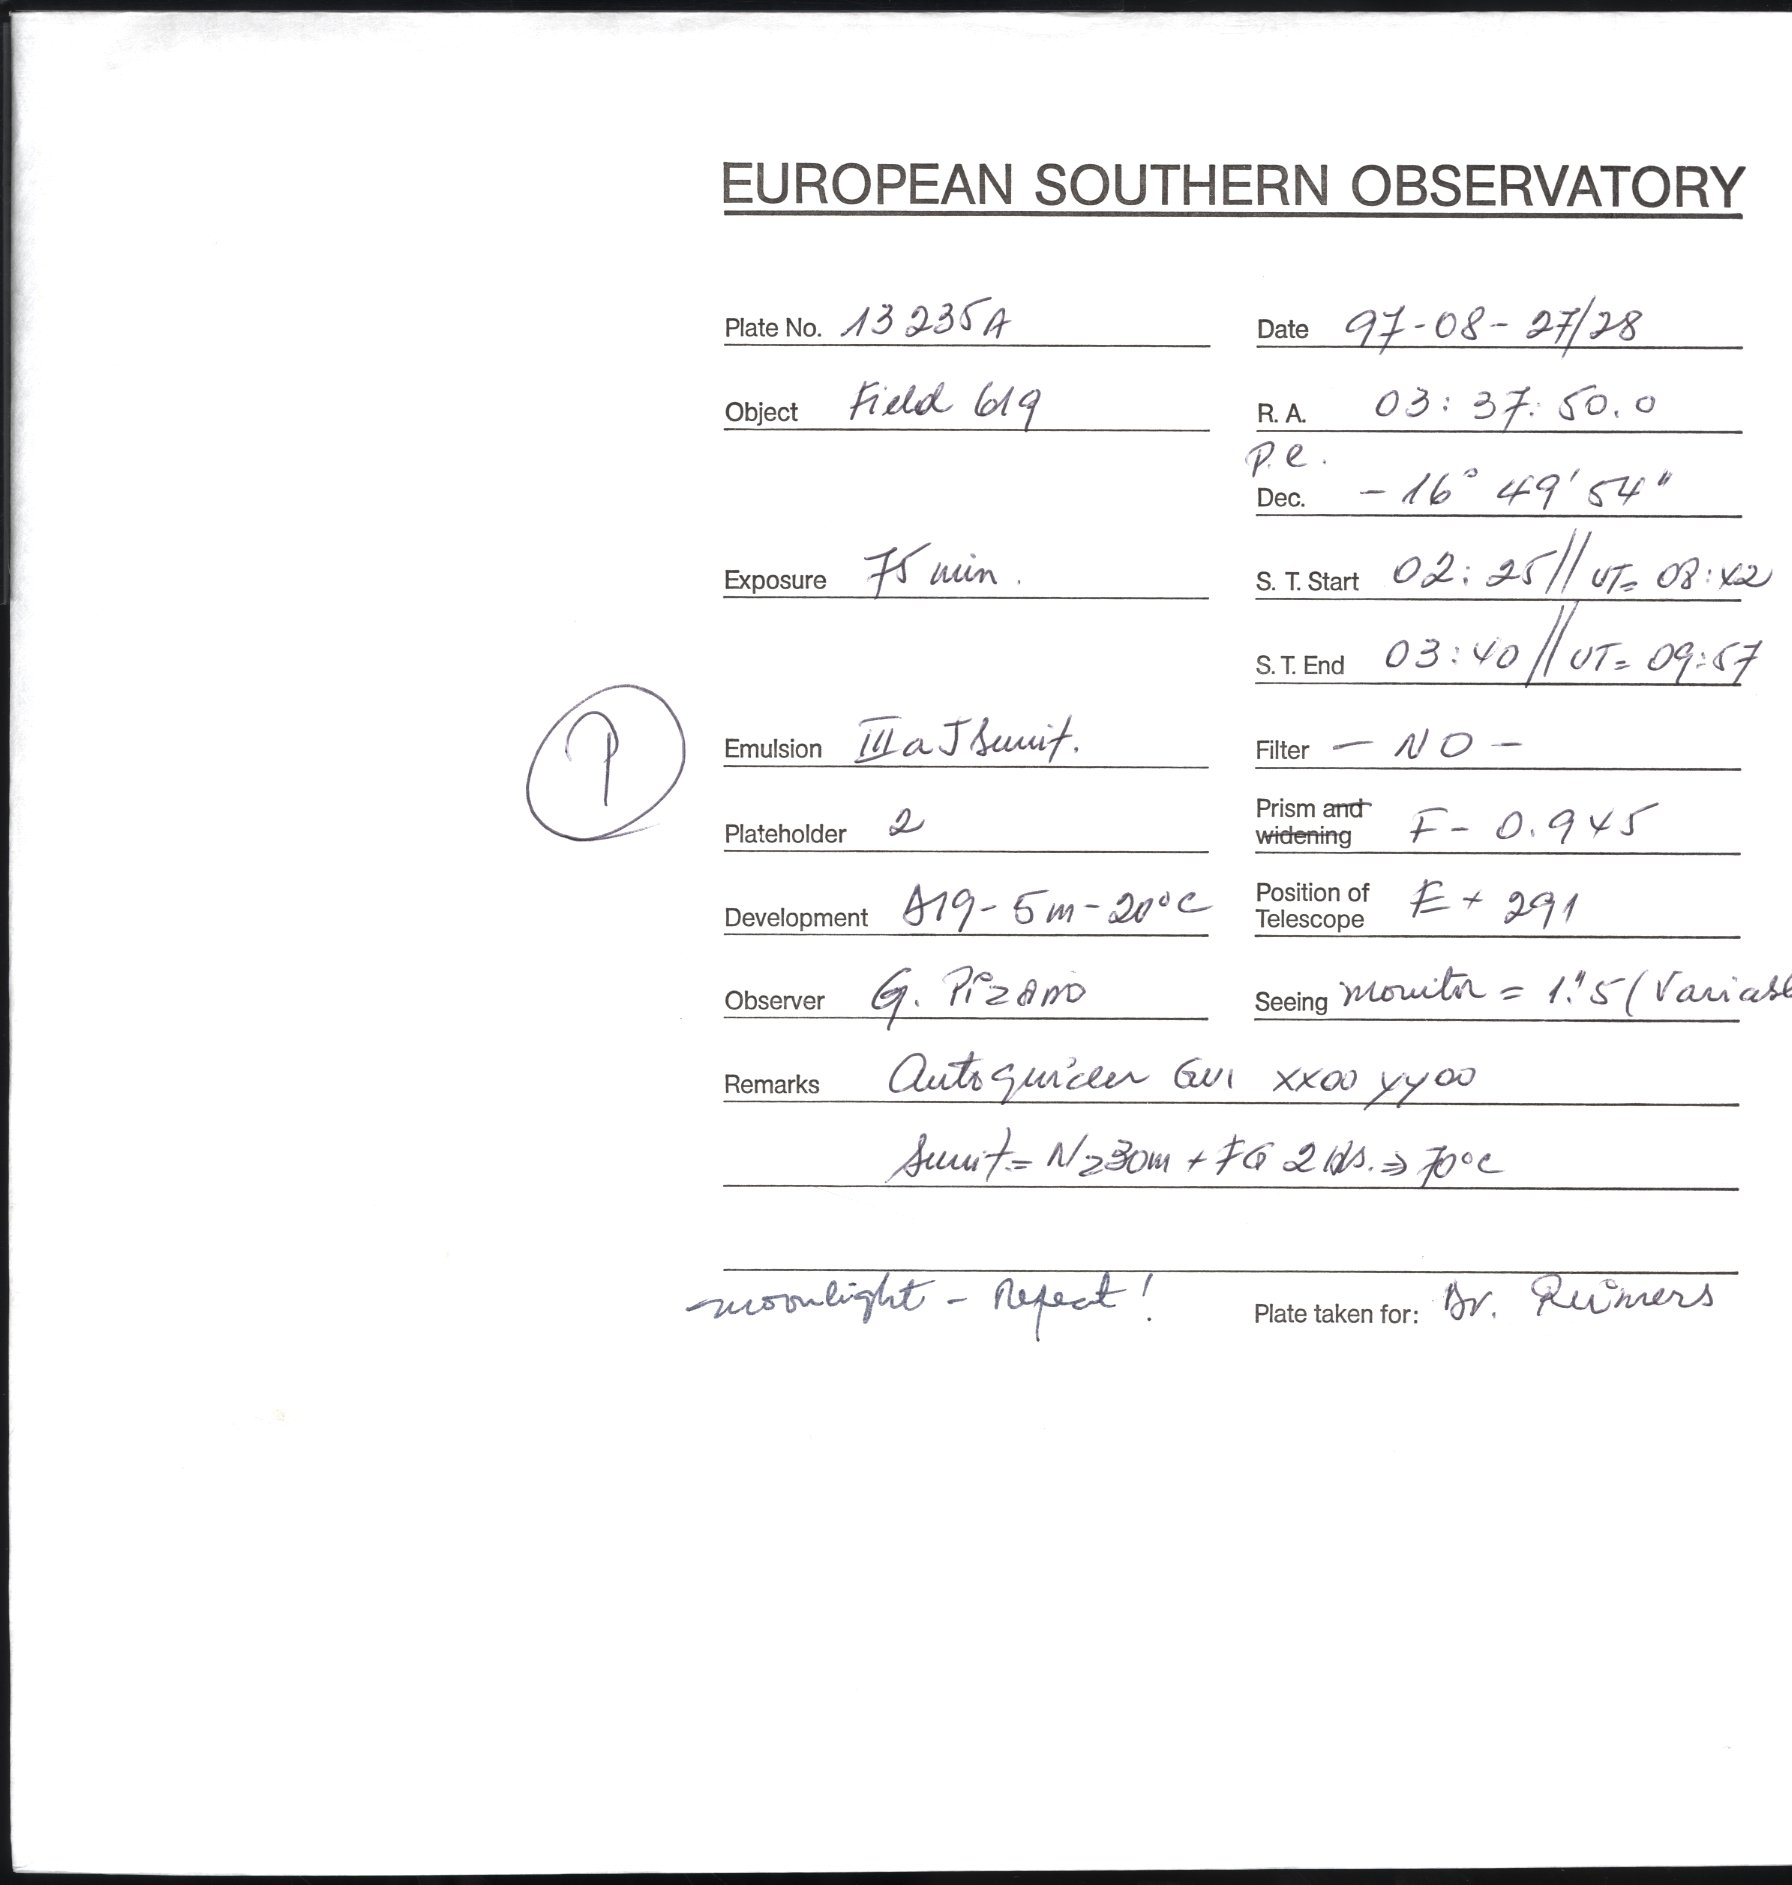 EUROPEAN SOUTHERN OBSERVATORY
Plate No. 13235A Date 97-08-27/28
Object Field 619 R. A. 03: 37: 50.0
P.e.
Dec. - 16° 49' 54"
Exposure 75 min. S. T. Start 02: 25 // UT= 08:42
S. T. End 03:40 // UT= 09:57
P
Emulsion IIIaJ Filter - NO -
Plateholder 2 Prism and widening F- 0.945
Development A19- 5m- 20°C Position of Telescope E + 291
Observer G. Pizarro Seeing monitor = 1."5 (Variabl
Remarks Autoguider GW1 XX00 YY00
= N2 30m + FG 2 => 70°C
moonlight - Repeat! Plate taken for: Dr. Reimers